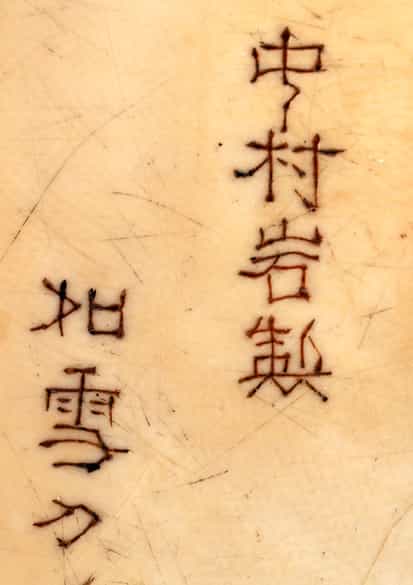 中村岩製
如雪刀